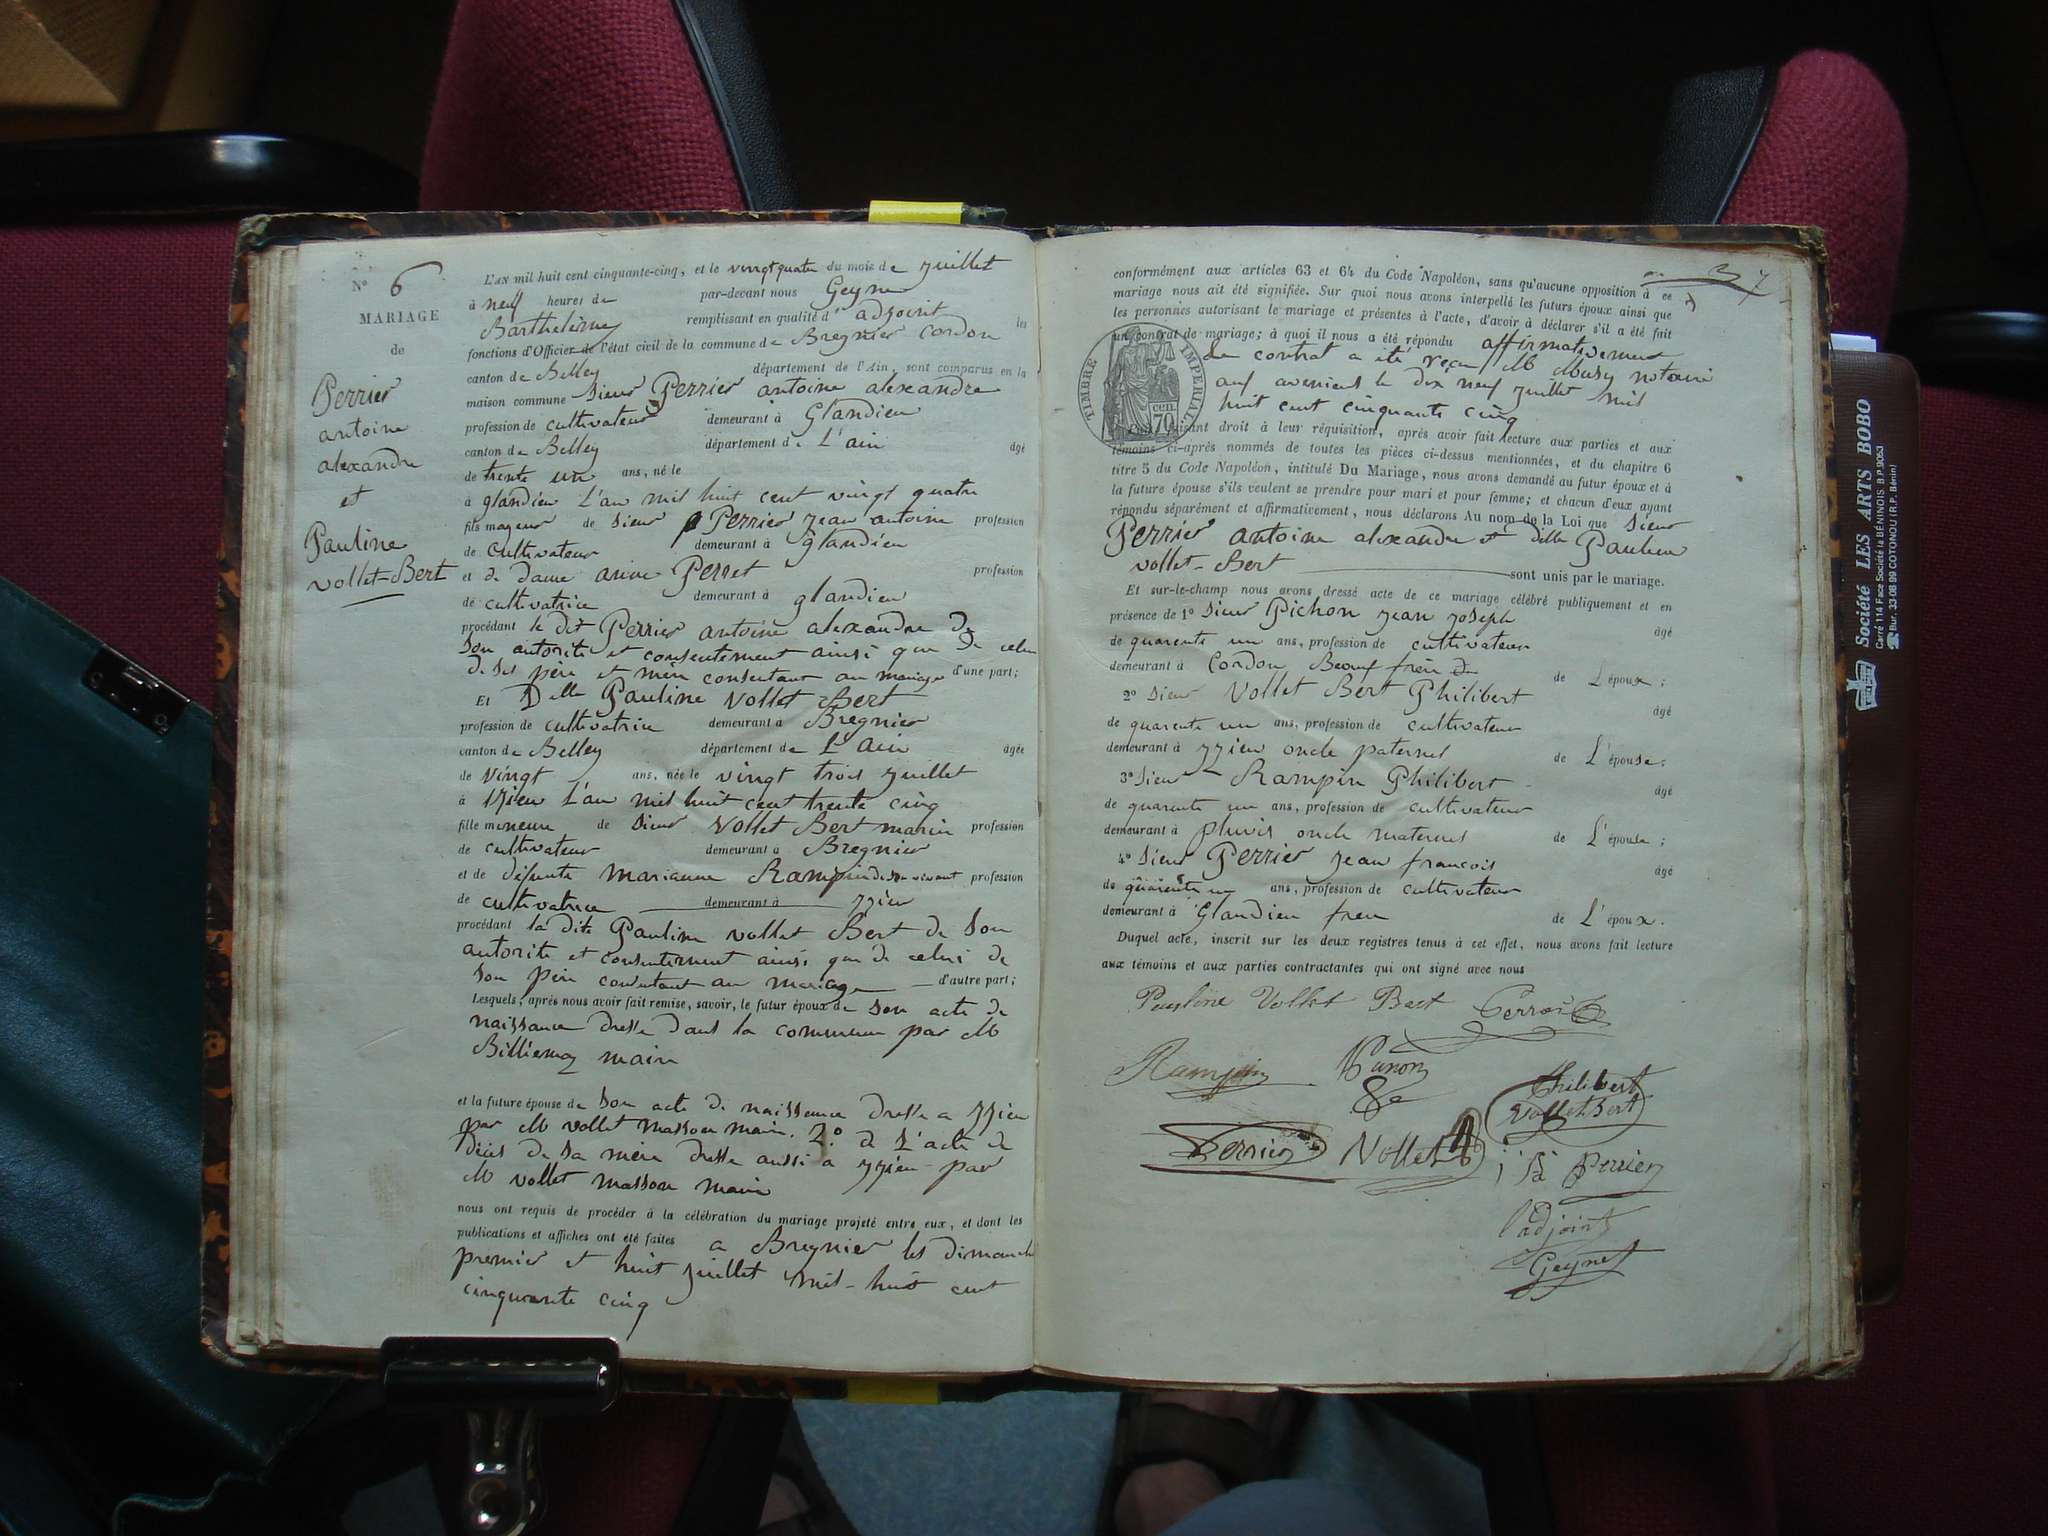 N° 6
MARIAGE
de
Perrier
antoine
alexandre
et
Pauline
vollet-Bert
L'AN mil huit cent cinquante-cinq, et le vingt quatre du mois de juillet
à neuf heures du par-devant nous Geyne
Barthelemy remplissant en qualité d'adjoint les
fonctions d'Officier de l'état civil de la commune de Bregnier Cordon
canton de Belley département de l'Ain, sont comparus en la
maison commune Sieur Perrier antoine alexandre
profession de cultivateur demeurant à Glandieu
canton de Belley département de L'ain âgé
de trente un ans, né le
à glandieu L'an mil huit cent vingt quatre
fils mageur de Sieur Perrier jean antoine profession
de cultivateur demeurant à glandieu
et de dame anne Perret profession
de cultivatrice demeurant à glandieu
procédant le dit Perrier antoine alexandre de
Son autorité et consentement ainsi que de celui
de ses père et mere consentant au mariage d'une part;
Et Delle Pauline Vollet Bert
profession de cultivatrice demeurant à Bregnier
canton de Belley département de L'ain âgée
de vingt ans, née le vingt trois juillet
à izieu L'an mil huit cent trente cinq
fille mineure de Sieur Vollet Bert marin profession
de cultivateur demeurant à Bregnier
et de défunte marianne Rampin de son vivant profession
de cultivatrice demeurant à izieu
procédant la dite Pauline vollet Bert de Son
autorité et consentement ainsi que de celui de
Son père consentant au mariage d'autre part;
Lesquels, après nous avoir fait remise, savoir, le futur époux de Son acte de
naissance dressé dans la commune par M
Billiemaz maire
et la future épouse de Son acte de naissance dressé a izieu
par M vollet masson maire. 2° de L'acte de
décès de Sa mère dressé aussi a izieu par
M vollet masson maire
nous ont requis de procéder à la célébration du mariage projeté entre eux, et dont les
publications et affiches ont été faites a Bregnier les dimanche
premier et huit juillet mil-huit cent
cinquante cinq
7
conformément aux articles 63 et 64 du Code Napoléon, sans qu'aucune opposition à ce
mariage nous ait été signifiée. Sur quoi nous avons interpellé les futurs époux ainsi que
les personnes autorisant le mariage et présentes à l'acte, d'avoir à déclarer s'il a été fait
un contrat de mariage; à quoi il nous a été répondu affirmativement
Le contrat a été reçu M Musy notaire
aux avenieres le dix neuf juillet mil
huit cent cinquante cinq
TIMBRE IMPERIAL
70
faisant droit à leur réquisition, après avoir fait lecture aux parties et aux
témoins ci-après nommés de toutes les pièces ci-dessus mentionnées, et du chapitre 6
titre 5 du Code Napoléon, intitulé Du Mariage, nous avons demandé au futur époux et à
la future épouse s'ils veulent se prendre pour mari et pour femme; et chacun d'eux ayant
répondu séparément et affirmativement, nous déclarons Au nom de la Loi que Sieur
Perrier antoine alexandre et delle Pauline
vollet-Bert sont unis par le mariage.
Et sur-le-champ nous avons dressé acte de ce mariage célébré publiquement et en
présence de 1° Sieur Pichon jean joseph âgé
de quarente un ans, profession de cultivateur
demeurant à Cordon Beauf frère de L'époux;
2° Sieur Vollet Bert Philibert âgé
de quarente un ans, profession de cultivateur
demeurant à izieu oncle paternel de L'épouse;
3° Sieur Rampin Philibert âgé
de quarente un ans, profession de cultivateur
demeurant à pluvis oncle maternel de L'épouse;
4° Sieur Perrier jean francois âgé
de quarente un ans, profession de cultivateur
demeurant à Glandieu frere de L'époux.
Duquel acte, inscrit sur les deux registres tenus à cet effet, nous avons fait lecture
aux témoins et aux parties contractantes qui ont signé avec nous
Pauline Vollet Bert Perrier
Rampin
Philibert
Vollet Bert
Perrier Vollet
Perrier
l'adjoint
Geynet
Société LES ARTS BOBO
Carré 114 Face Société la BÉNINOIS. B.P. 9063
Bur. 33-08 99 COTONOU (R.P. Bénin)